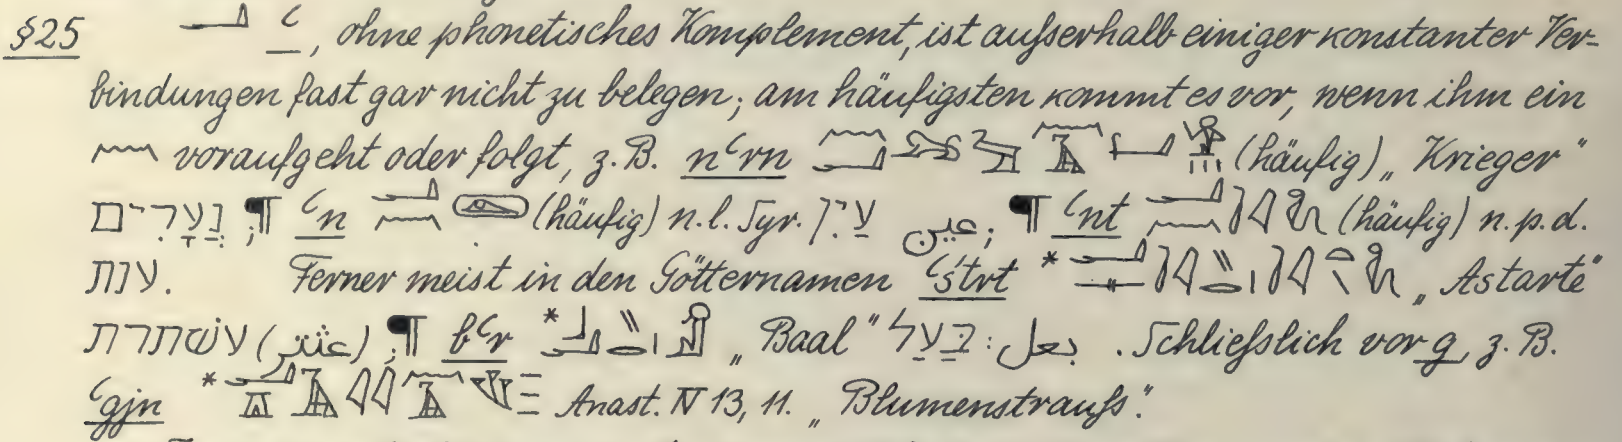 §25 ꜥ, ohne phonetisches Komplement, ist aufserhalb einiger konstanter Ver=
bindungen fast gar nicht zu belegen; am häufigsten kommt es vor, wenn ihm ein
voraufgeht oder folgt, z. B. nꜥrn (häufig) „Krieger"
נְעָרִים ¶; ꜥn (häufig) n. l. Syr. עַיִן عين; ¶ ꜥnt (häufig) n. p. d.
ענת. Ferner meist in den Götternamen ꜥśtrt * „Astarte"
עשׁתרת (عثتر) ¶; bꜥr * „Baal" בַּעַל: بعل. Schliefslich vor g, z. B.
ꜥgjn * Anast. IV 13, 11. „Blumenstraufs".